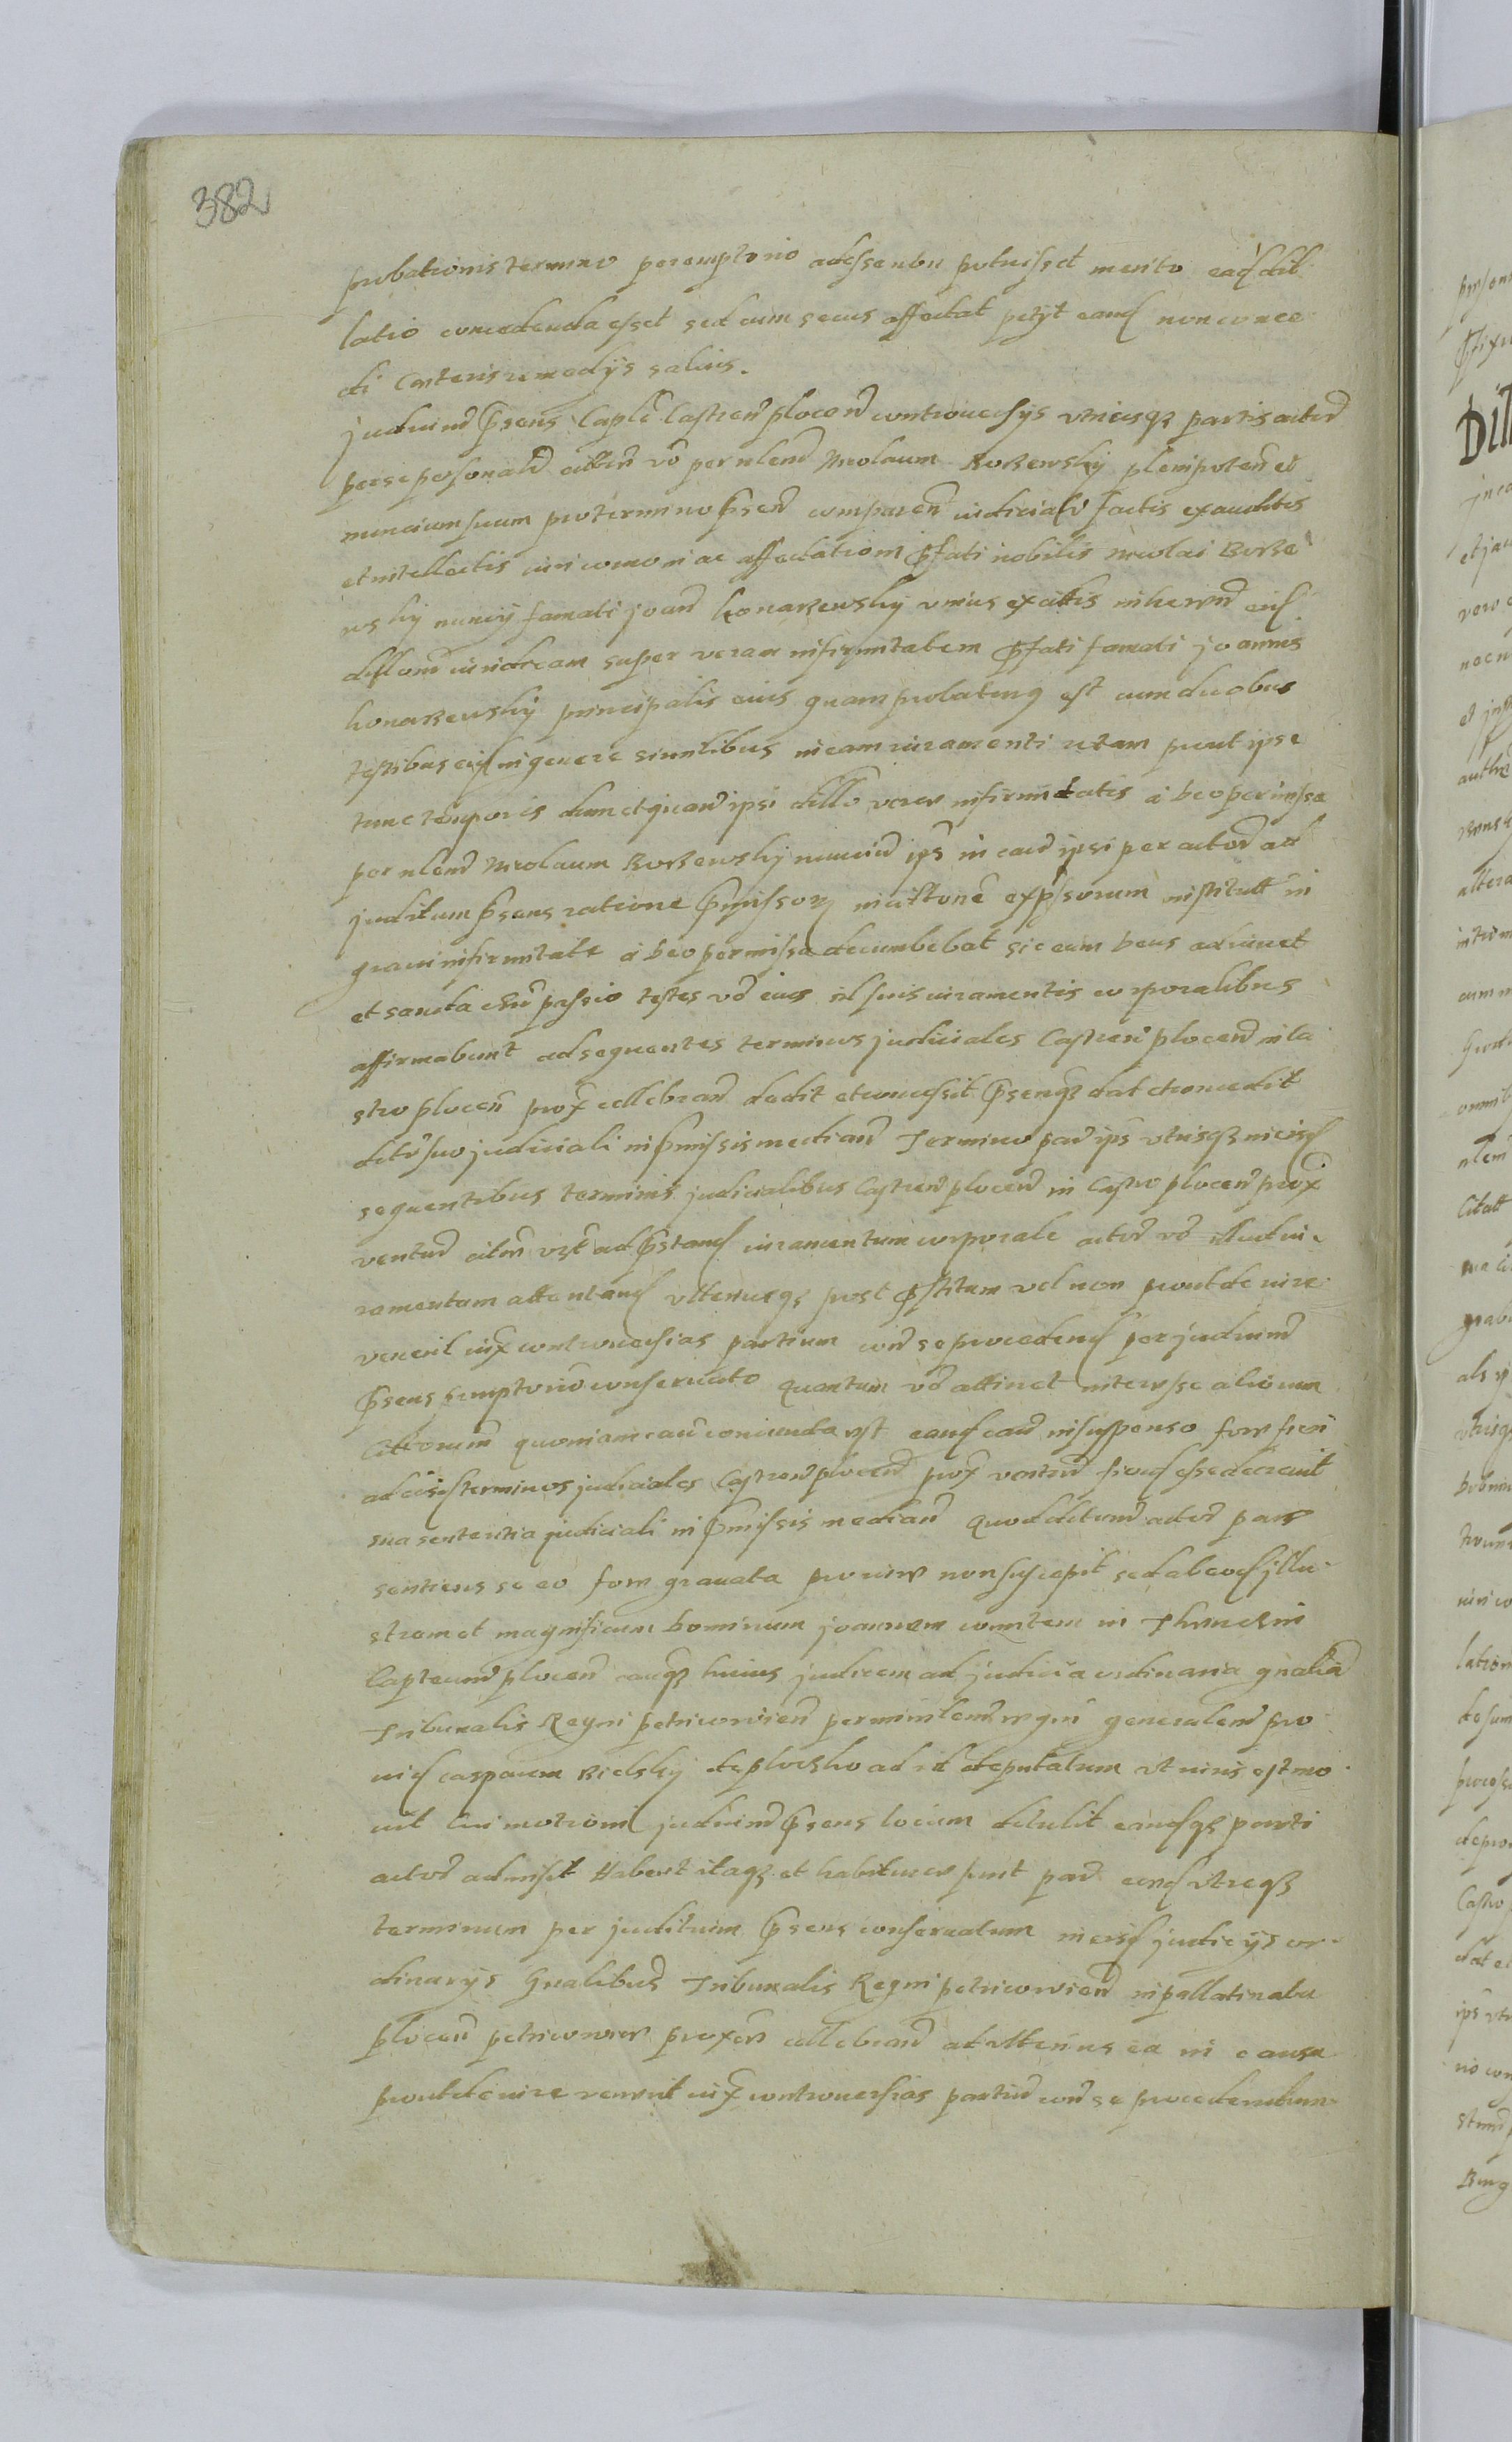 382
probationis termino peremptorio adesse non potuisset merito ead dil
latio concedenda esset sed cum secus affectat petyt eand non conce
di Cæteris remedys salvis.
Judicium presens Caple Castren plocen controversys utriusq partis actor
per se personalr citti vo per nlem Nicolaum Borzewsky plenipoten et
nuncium suum pro termino presen comparen iudicialr factis exauditis
et intellectis iuri comoni ac affectatiom prefati nobilis Nicolai Borze
wsky nuncy famati Joan Konarzewsky unius ex cittis inheren eid
dillom iuridicam super veram infirmitatem prefati famati Joannis
Konarzewsky principalis eius quam probaturq est cum duobus
testibus eid in genere similibus in eam iuramenti rotam prout ipse
tunc temporis dum et quan ipsi dillo verae infirmitatis a Deo permissa
per nlem Nicolaum Borzewsky nuncium ips in cau ipsi per actor ad
juditium presens ratione premissor in cittone expressorum institutt in
gravi infirmitate a Deo permissa decumbebat sic eum Deus adiuvet
et sancta chri passio testes vo eius id suis iuramentis corporalibus
affirmabunt ad sequentes terminos judiciales Castren plocen in Ca
stro plocen prox cellebran dedit et concessit presensq dat et concedit
decreto suo judiciali in premissis median Termino par ips utrisq in eisd
sequentibus terminis judicialibus Castren plocen in Castro plocen prox
ventur citm vzt ad prestand iuramentum corporale actor vo illud iu
ramentum attentand ulteriusq post prestitum vel non prout de iure
venerit iux controversias partium coram se procedend per judicium
presens peremptorio conservato Quantum vo attinet interesse aliorum
Cittorum quoniam cau coniuncta est eand cau in suspenso fore fieri
ad eosd terminos judiciales Castren plocen prox ventur fiend esse decrevit
sua sententia judiciali in premissis median Quod decretum actor pars
sentiens se eo fore gravata pro iure non suscepit sed ab eod illu
strem et magnificum Dominum Joannem comitem in Thenczin
Capteum plocen eiusq huius judicem ad judicia ordinaria gnalia
Tribunalis Regni petricovien per minlem regni generalem pro
vid casparum Bielsky de plocsko ad id deputatum ut iuris est mo
vit Cui motioni judicium presens locum detulit eandq parti
actor admisit Habent itaq et habiturae sunt par eaed utreq
terminum per juditium presens conservatum in eisd judicys or
dinarys Gnalibus Tribunalis Regni petricovien in pallatinatu
plocen petricoviae proxime cellebran ad ulterius ea in causa
prout de iure venerit iux controversias partium coram se procedendum